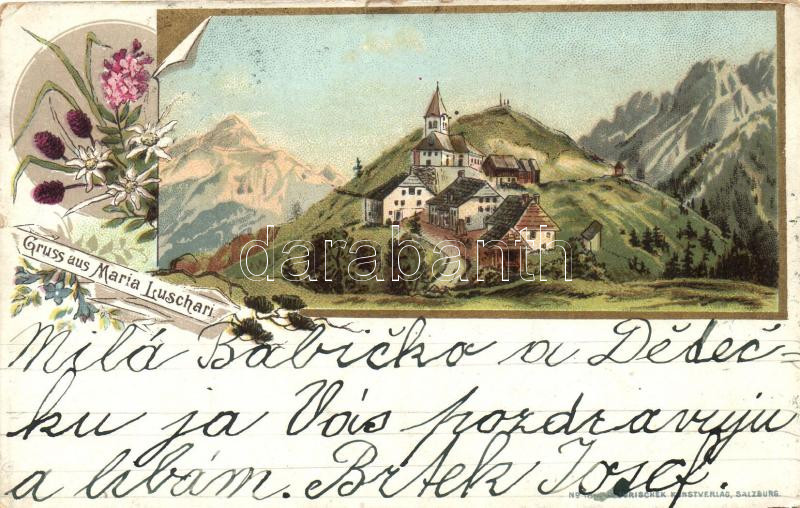 Gruss aus Maria Luschari
darabanth
Milá Babičko a Děteč-
ku ja Vás pozdravuju
a libám. Brtek Josef.
KUNSTVERLAG, SALZBURG.